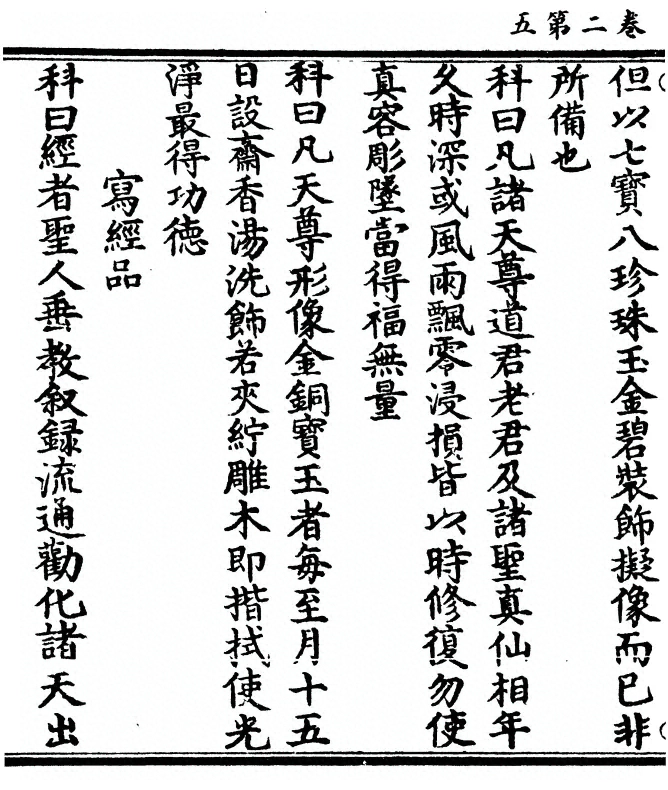 五第二卷
但以七寶八珍珠玉金碧裝飾擬像而已非
所備也
科曰凡諸天尊道君老君及諸聖真仙相年
久時深或風雨飄零浸損皆以時修復勿使
真容彫墜當得福無量
科曰凡天尊形像金銅寶玉者每至月十五
日設齋香湯洗飾若夾紵雕木即揩拭使光
淨最得功德
寫經品
科曰經者聖人垂教叙録流通勸化諸天出